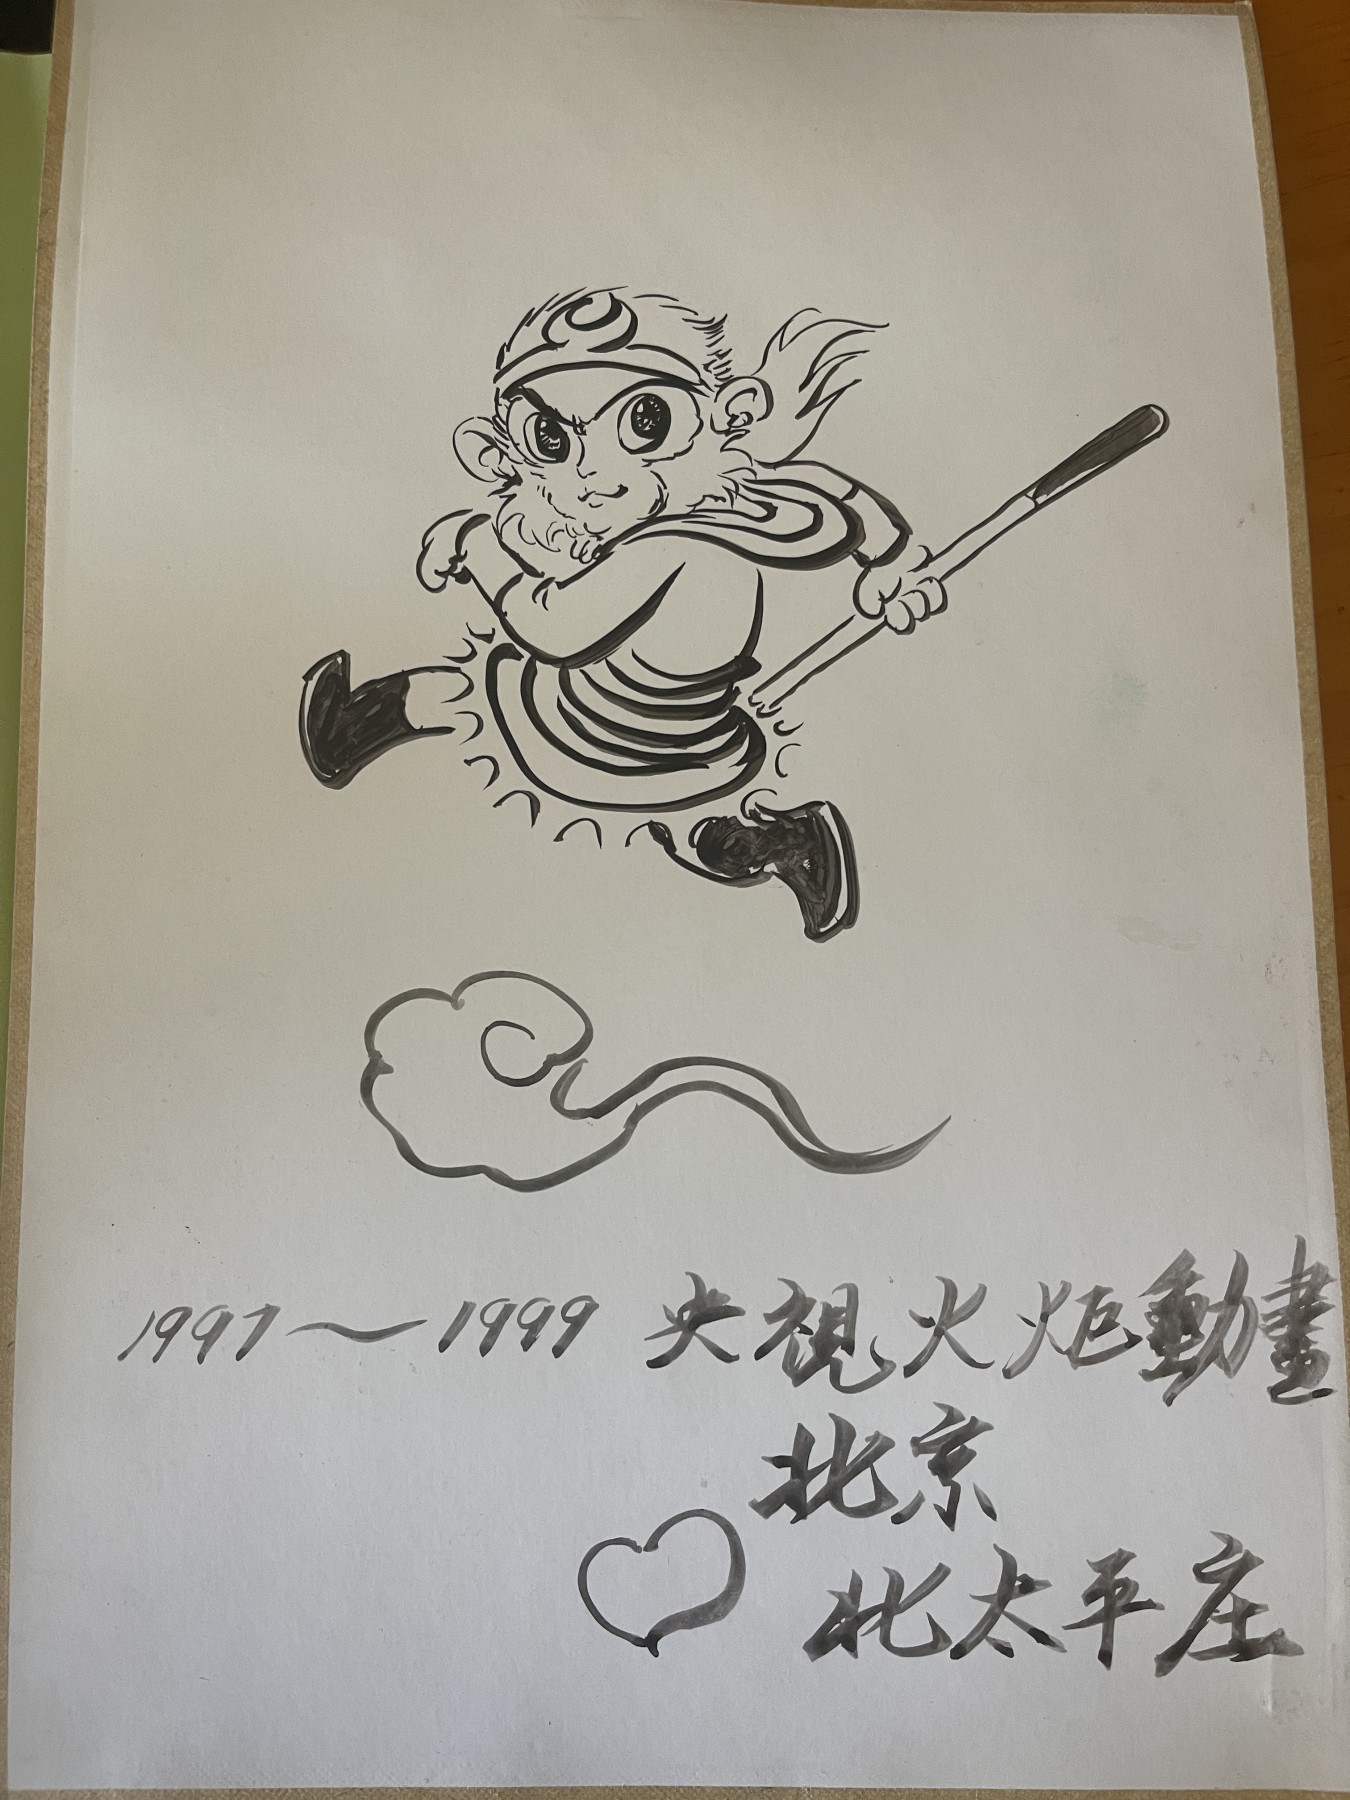 1997～1999 央視火炬動畫
北京
北太平庄